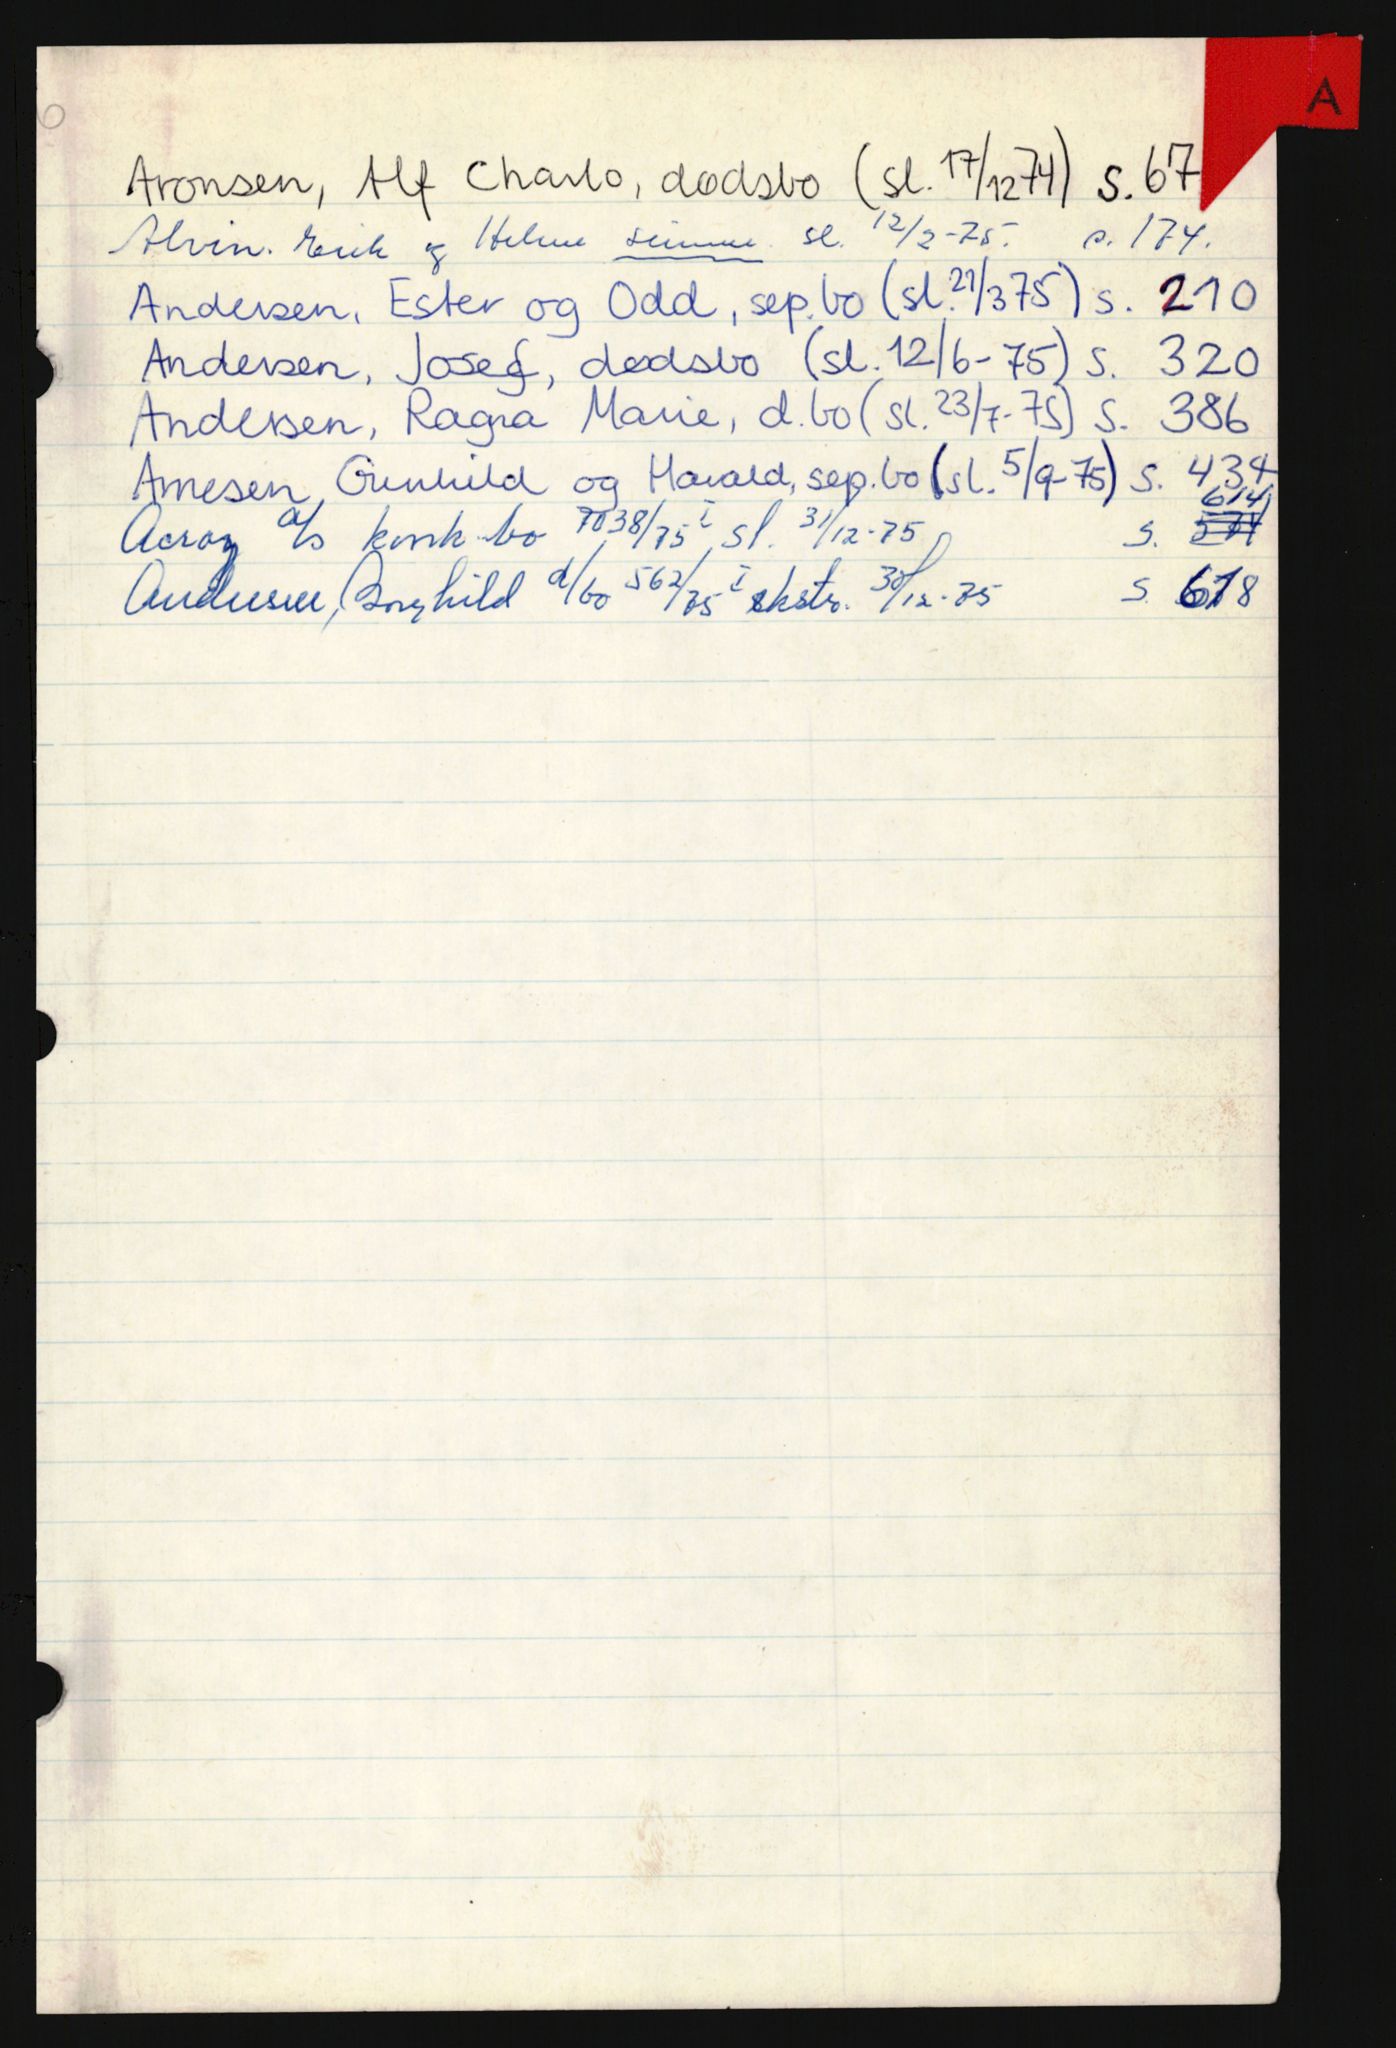 A
Aronsen, Alf Charlo, dødsbo (sl. 17/12 74) s. 67
Alvin. Erik og Helene sl. 12/2-75. s. 174.
Andersen, Ester og Odd, sep.bo (sl. 21/3 75) s. 210
Andersen, Josef, dødsbo (sl. 12/6-75) s. 320
Andersen, Ragna Marie, d.bo (sl. 23/7-75) s. 386
Arnesen, Gunhild og Harald, sep.bo (sl. 5/9-75) s. 434
a/s konk.bo 7038/75 I sl. 31/12-75 s. 614
Andersen, Borghild d/bo 562/75 I ekstr. 30/12-75 s. 618